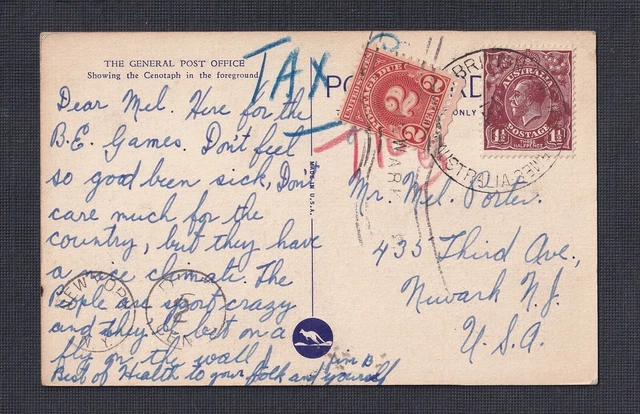 THE GENERAL POST OFFICE
Showing the Cenotaph in the foreground
TAX
Dear Mel. Here for the
B.E. Games. Don't feel
so good been sick, Don't
care much for the
country, but they have
a nice climate. The
People are sport crazy
and they'll bet on a
fly on the wall
Best of Health to your folk and yourself
Jim B
MADE IN U.S.A.
POSTAGE DUE
2
CENTS
AUSTRALIA
1½ 1½
POSTAGE
THREE
HALFPENCE
ONLY
AUSTRALIA
NEW YORK
N.Y.
Mr. Mel Porter.
435 Third Ave.,
Newark N.J.
U.S.A.